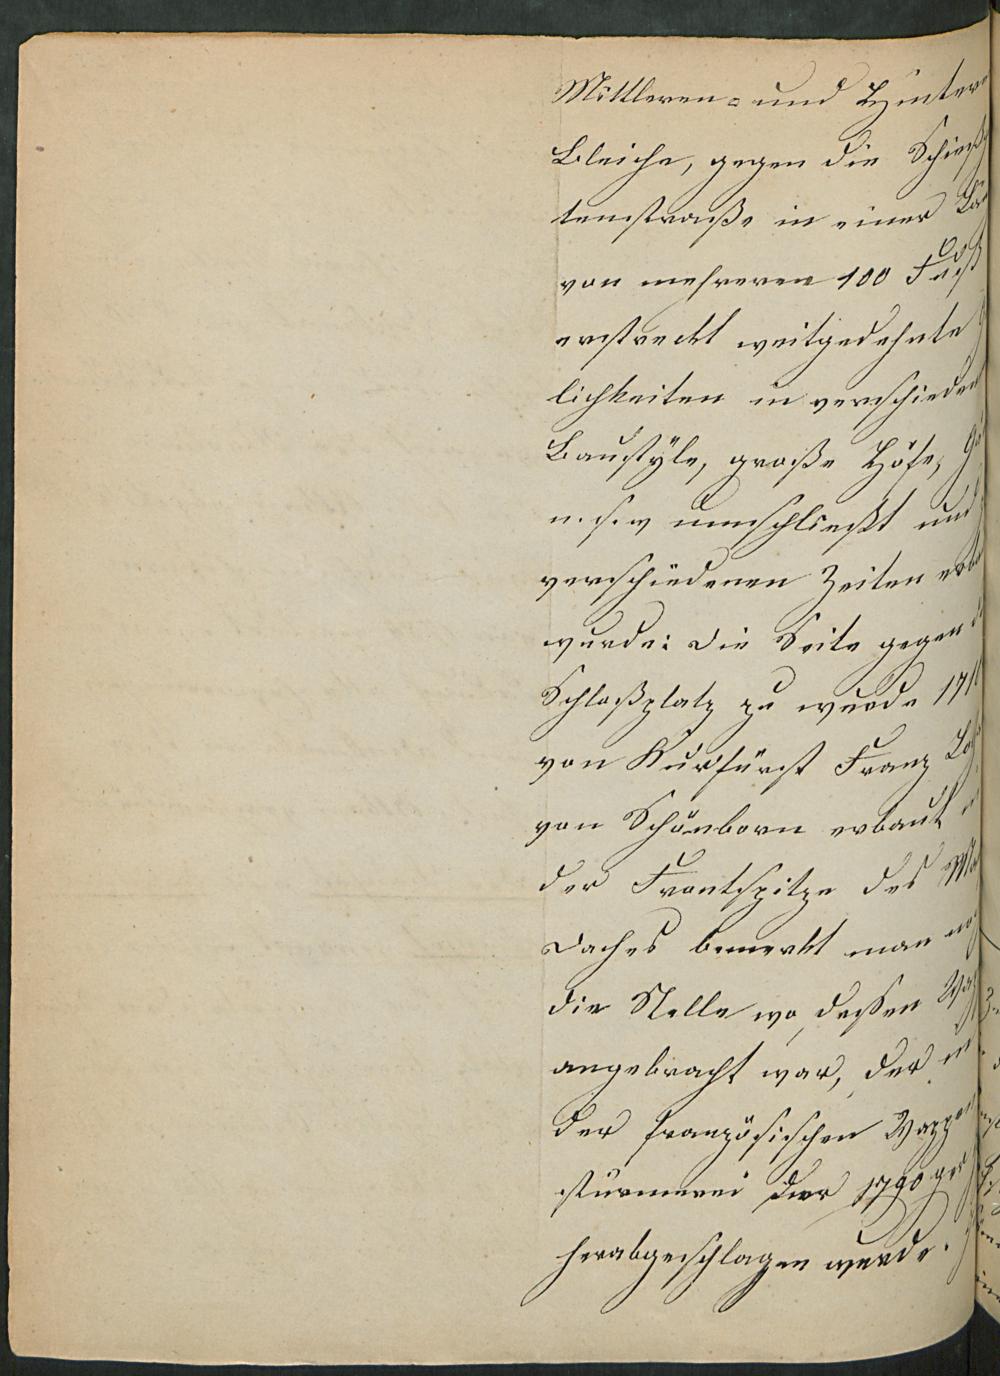 Mittleren= und Hintere
Bleiche, gegen die Schieß
tenstraße in einer
von mehreren 100 Fuß
erstreckt weitgedehnte
lichkeiten in verschieden
Baustÿle, große Höfe,
u. s. w umschließt und
verschiedenen Zeiten erba
wurde: Die Seite gegen d
Schloßplatz zu wurde 171
von Kurfürst Franz Lo
von Schönborn erbaut
der Frontspitze des Ma
Daches bemerkt man no
die Stelle wo dessen Wap
angebracht war, der
der französischen Wappen
stürmerei der 1790 ger
herabgeschlagen wurde.